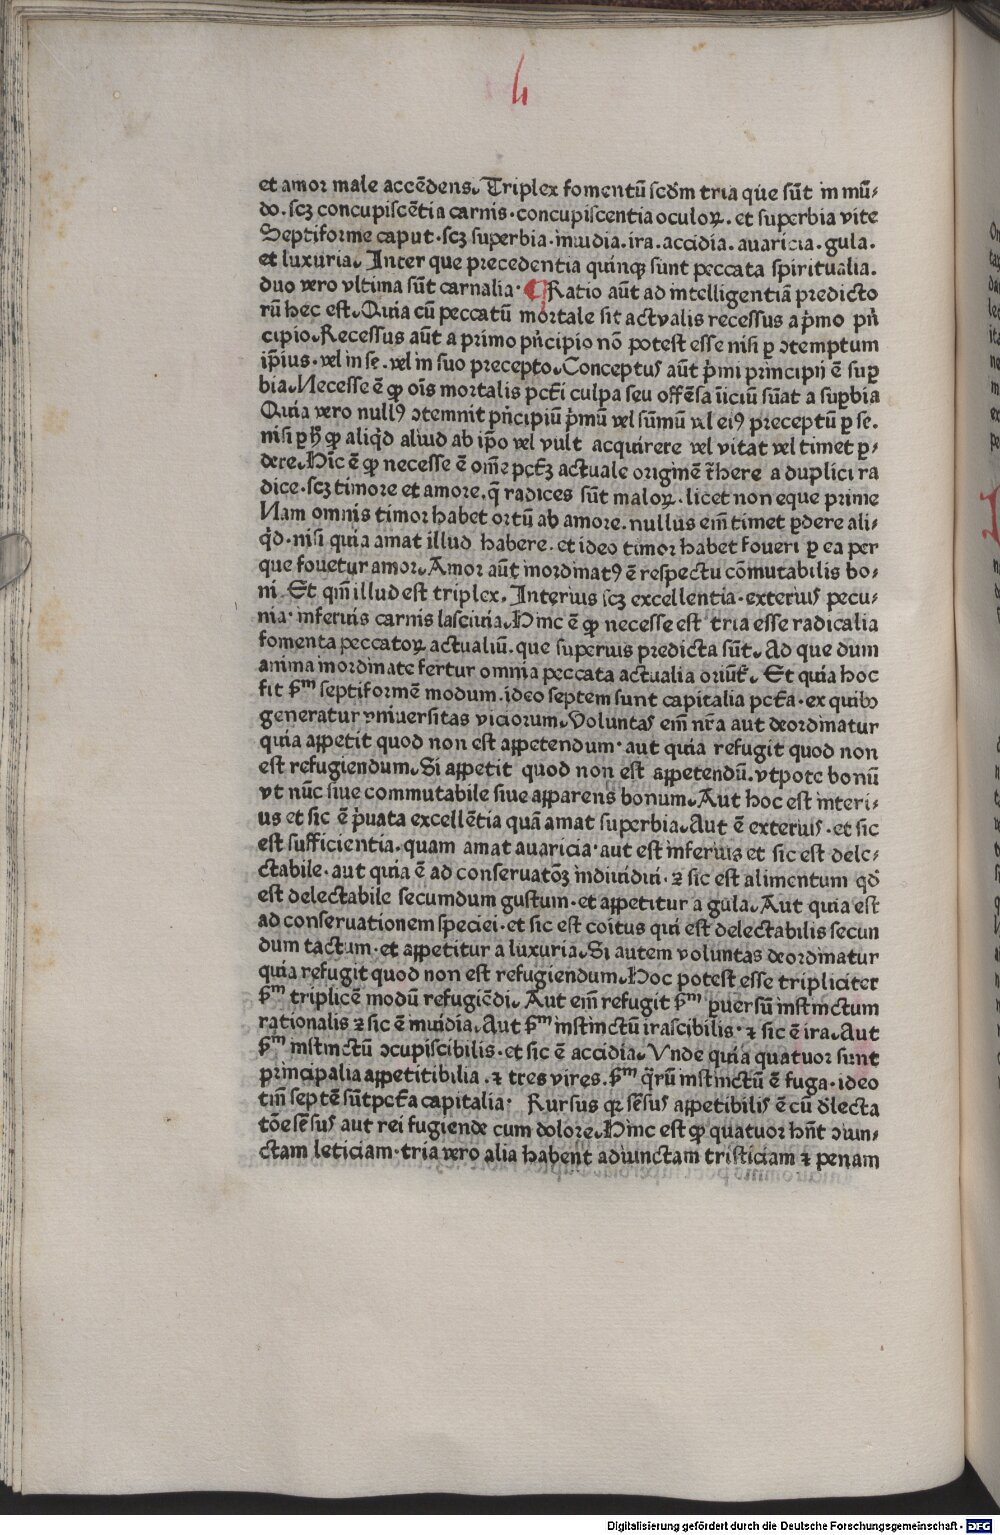 h
et amor male accēdens. Triplex fomentū scd̄m tria que sūt in mū-
do. scꝫ concupiscētia carnis. concupiscentia oculoꝝ. et superbia vite
Septiforme caput. scꝫ superbia. inuidia. ira. accidia. auaricia. gula.
et luxuria. Inter que precedentia quinqꝫ sunt peccata spiritualia.
duo vero vltima sūt carnalia. Ratio aūt ad intelligentiā predicto
rū hec est. Quia cū peccatū mortale sit actualis recessus a p̄mo pn̄
cipio. Recessus aūt a primo pn̄cipio nō potest esse nisi ꝑ ↄtemptum
ip̄ius. vel in se. vel in suo precepto. Conceptus aūt p̄mi principij ē suꝑ
bia. Necesse ē ꝙ oīs mortalis pctī culpa seu offēsa īiciū sūat a suꝑbia
Quia vero nullꝰ ↄtemnit pn̄cipiū p̄mū vel sūmū vl eiꝰ preceptū ꝑ se.
nisi ꝑ hͦ ꝙ aliqd̄ aliud ab ip̄o vel vult acquirere vel vitat vel timet ꝑ-
dere. Hīc ē ꝙ necesse ē om̄e pctꝫ actuale originē t̄here a duplici ra
dice. scꝫ timore et amore. q̄ radices sūt maloꝝ. licet non eque prime
Nam omnis timor habet ortū ab amore. nullus em̄ timet ꝑdere ali-
qd̄. nisi quia amat illud habere. et ideo timor habet foueri ꝑ ea per
que fouetur amor. Amor aūt inordinatꝰ ē respectu cōmutabilis bo-
ni Et qm̄ illud est triplex. Interius scꝫ excellentia. exterius pecu-
nia. inferius carnis lasciuia. Hinc ē ꝙ necesse est tria esse radicalia
fomenta peccatoꝝ actualiū. que superius predicta sūt. Ad que dum
anima inordinate fertur omnia peccata actualia oriūt᷑. Et quia hoc
fit ẜm septiformē modum. ideo septem sunt capitalia pctā. ex quibꝰ
generatur vniuersitas viciorum. Voluntas em̄ nr̄a aut deordinatur
quia appetit quod non est appetendum. aut quia refugit quod non
est refugiendum. Si appetit quod non est appetendū. vtpote bonū
vt nūc siue commutabile siue apparens bonum. Aut hoc est interi-
us et sic ē p̄uata excellētia quā amat superbia. Aut ē exterius. et sic
est sufficientia. quam amat auaricia. aut est inferius et sic est dele-
ctabile. aut quia ē ad conseruatōꝫ indiuidui. ⁊ sic est alimentum qd̄
est delectabile secundum gustum. et appetitur a gula. Aut quia est
ad conseruationem speciei. et sic est coitus qui est delectabilis secun
dum tactum. et appetitur a luxuria. Si autem voluntas deordinatur
quia refugit quod non est refugiendum. Hoc potest esse tripliciter
ẜm triplicē modū refugiēdi. Aut em̄ refugit ẜm ꝑuersū instinctum
rationalis ⁊ sic ē inuidia. Aut ẜm instinctū irascibilis. ⁊ sic ē ira. Aut
ẜm instinctū ↄcupiscibilis. et sic ē accidia. Vnde quia quatuor sunt
principalia appetitibilia. ⁊ tres vires. ẜm q̄rū instinctū ē fuga. ideo
tm̄ septē sūt pctā capitalia. Rursus qꝛ sēsus appetibilis ē cū d̄lecta
tōe sēsus aut rei fugiende cum dolore. Hinc est ꝙ quatuor hn̄t ↄiun-
ctam leticiam. tria vero alia habent adiunctam tristiciam ⁊ penam
Digitalisierung gefördert durch die Deutsche Forschungsgemeinschaft - DFG